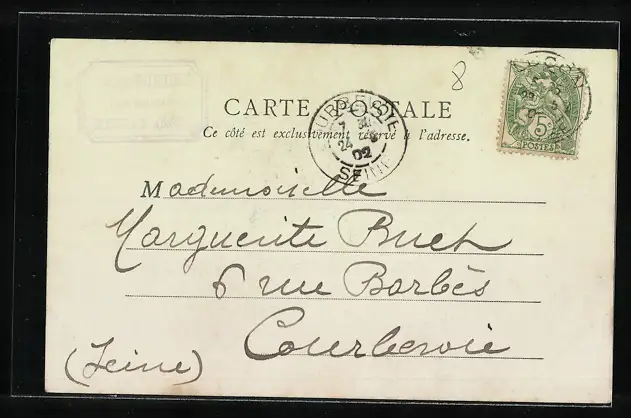 8
CARTE POSTALE
Ce côté est exclusivement réservé à l'adresse.
02
SEINE
5
POSTES
Mademoiselle
Marguerite Buch
6 rue Barbès
Courbevoie
(Seine)